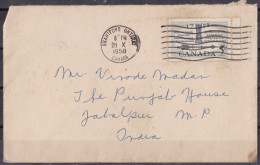 BRANTFORD ONTARIO
8 PM
X
1958
CANADA
CANADA
Mr Vinode Madan
The Punjab House
Jabalpur M.P
India